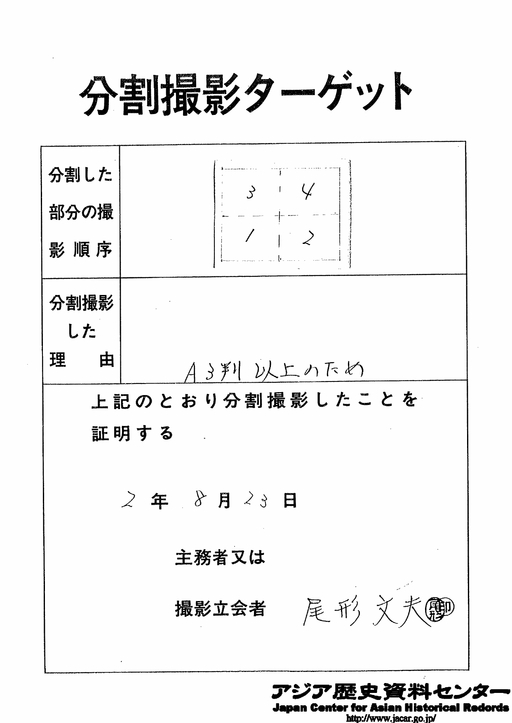 分割撮影ターゲット
分割した
部分の撮
影順序
3 4
1 2
分割撮影
した
理由
A3判以上のため
上記のとおり分割撮影したことを
証明する
2年8月23日
主務者又は
撮影立会者 尾形文夫 印
アジア歴史資料センター
Japan Center for Asian Historical Records
http://www.jacar.go.jp/